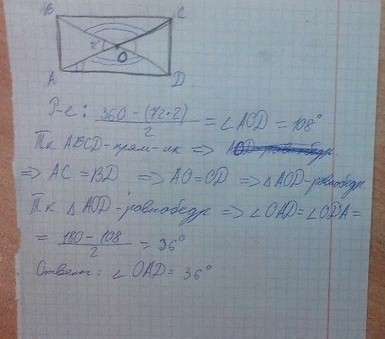 B C
72°
O
A D
Р-е: 360 - (72·2) / 2 = ∠AOD = 108°
Т.к ABCD-прям-ик ⇒
⇒ AC = BD ⇒ AO = OD ⇒ △AOD-равнобедр.
Т.к △AOD-равнобедр ⇒ ∠OAD = ∠ODA =
= 180 - 108 / 2 = 36°
Ответ: ∠OAD = 36°